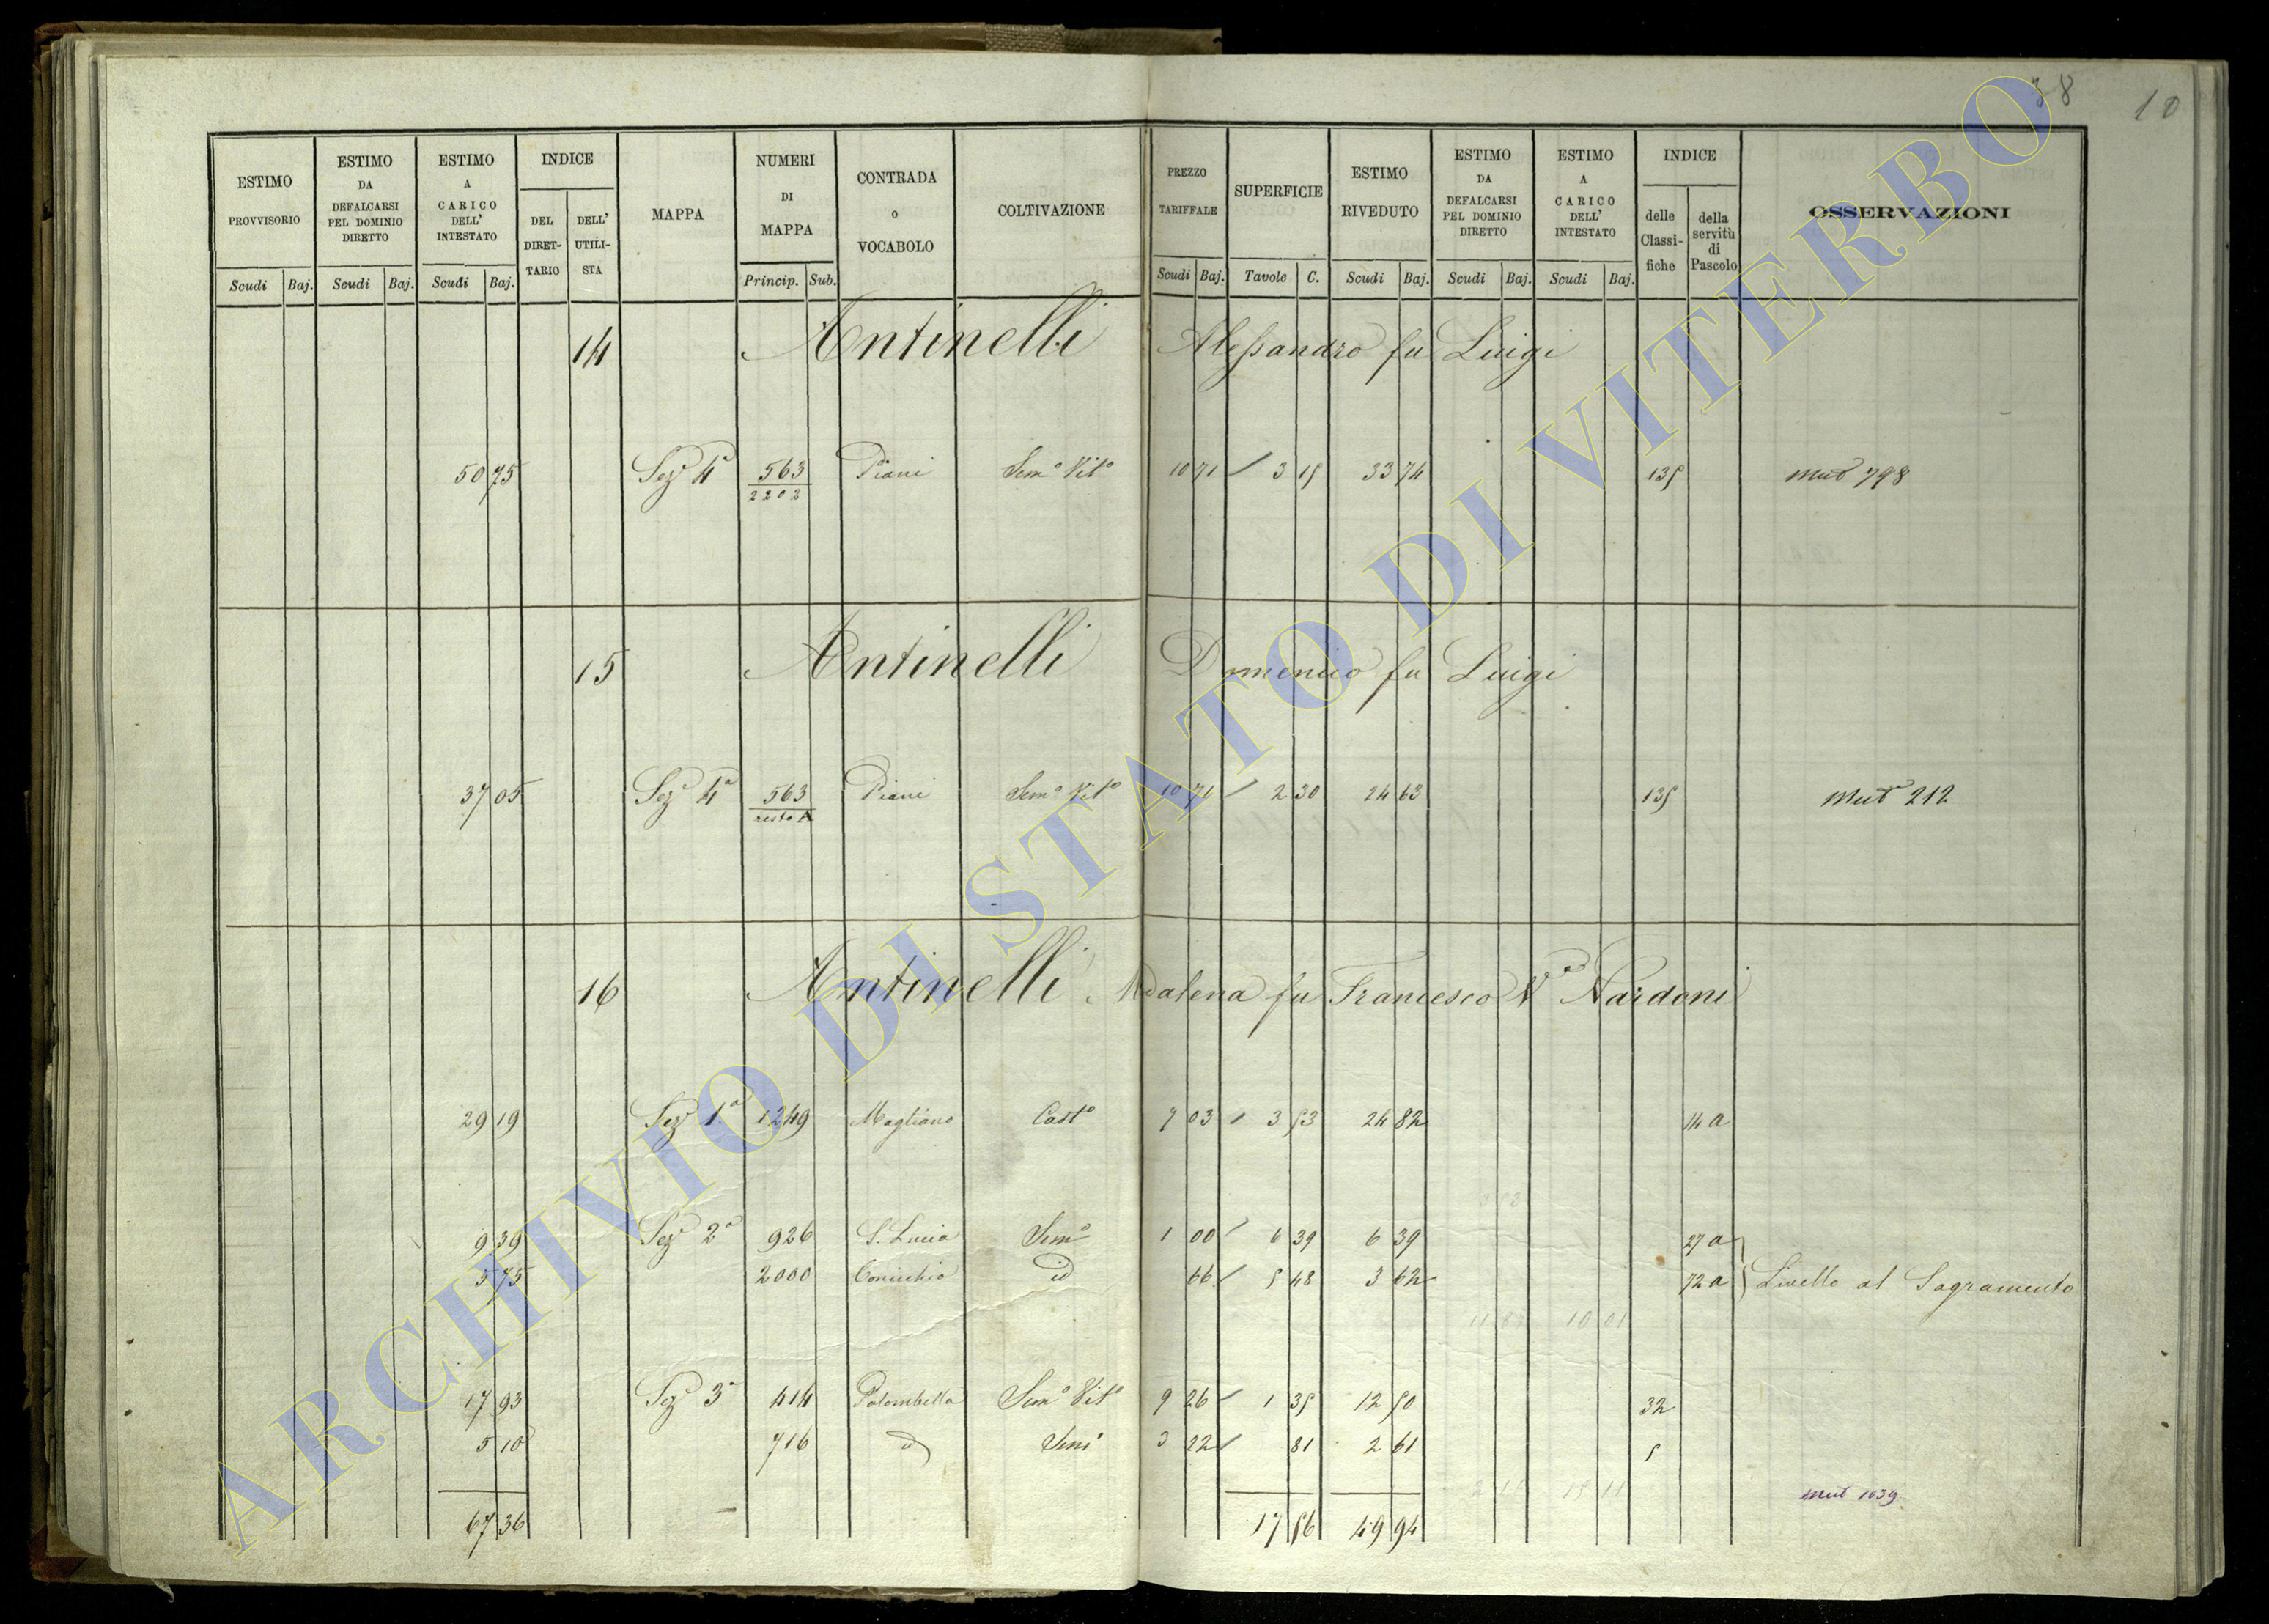 38 10
ESTIMO PROVVISORIO
Scudi Baj.
ESTIMO DA DEFALCARSI PEL DOMINIO DIRETTO
Scudi Baj.
ESTIMO A CARICO DELL' INTESTATO
Scudi Baj.
INDICE
DEL DIRET-TARIO
DELL' UTILI-STA
MAPPA
NUMERI DI MAPPA
Princip. Sub.
CONTRADA o VOCABOLO
COLTIVAZIONE
PREZZO TARIFFALE
Scudi Baj.
SUPERFICIE
Tavole C.
ESTIMO RIVEDUTO
Scudi Baj.
ESTIMO DA DEFALCARSI PEL DOMINIO DIRETTO
Scudi Baj.
ESTIMO A CARICO DELL' INTESTATO
Scudi Baj.
INDICE
delle Classi-fiche
della servitù di Pascolo
OSSERVAZIONI
14 Antinelli Alessandro fu Luigi
50 75 Sez. 4a 563 Piani Semo Vito 10 71 / 3 15 33 74 135 Mut 798
2202
15 Antinelli Domenico fu Luigi
37 05 Sez. 4a 563 Piani Semo Vito 10 71 / 2 30 24 63 135 Mut 212
resto A
16 Antinelli Madalena fu Francesco Va Nardoni
29 19 Sez. 1a 1249 Magliano Casto 7 03 / 3 53 24 82 14 a
9 39 Sez. 2a 926 S. Lucia Semo 1 00 / 6 39 6 39 27 a
5 75 2000 Conicchio id 66 / 5 48 3 62 72 a Livello al Sagramento
10 01
17 93 Sez. 3a 414 Palombella Semo Vito 9 26 / 1 35 12 50 32
5 10 716 id Semo 3 22 / 81 2 61 5
Mut 1039
67 36 17 56 49 94
ARCHIVIO DI STATO DI VITERBO